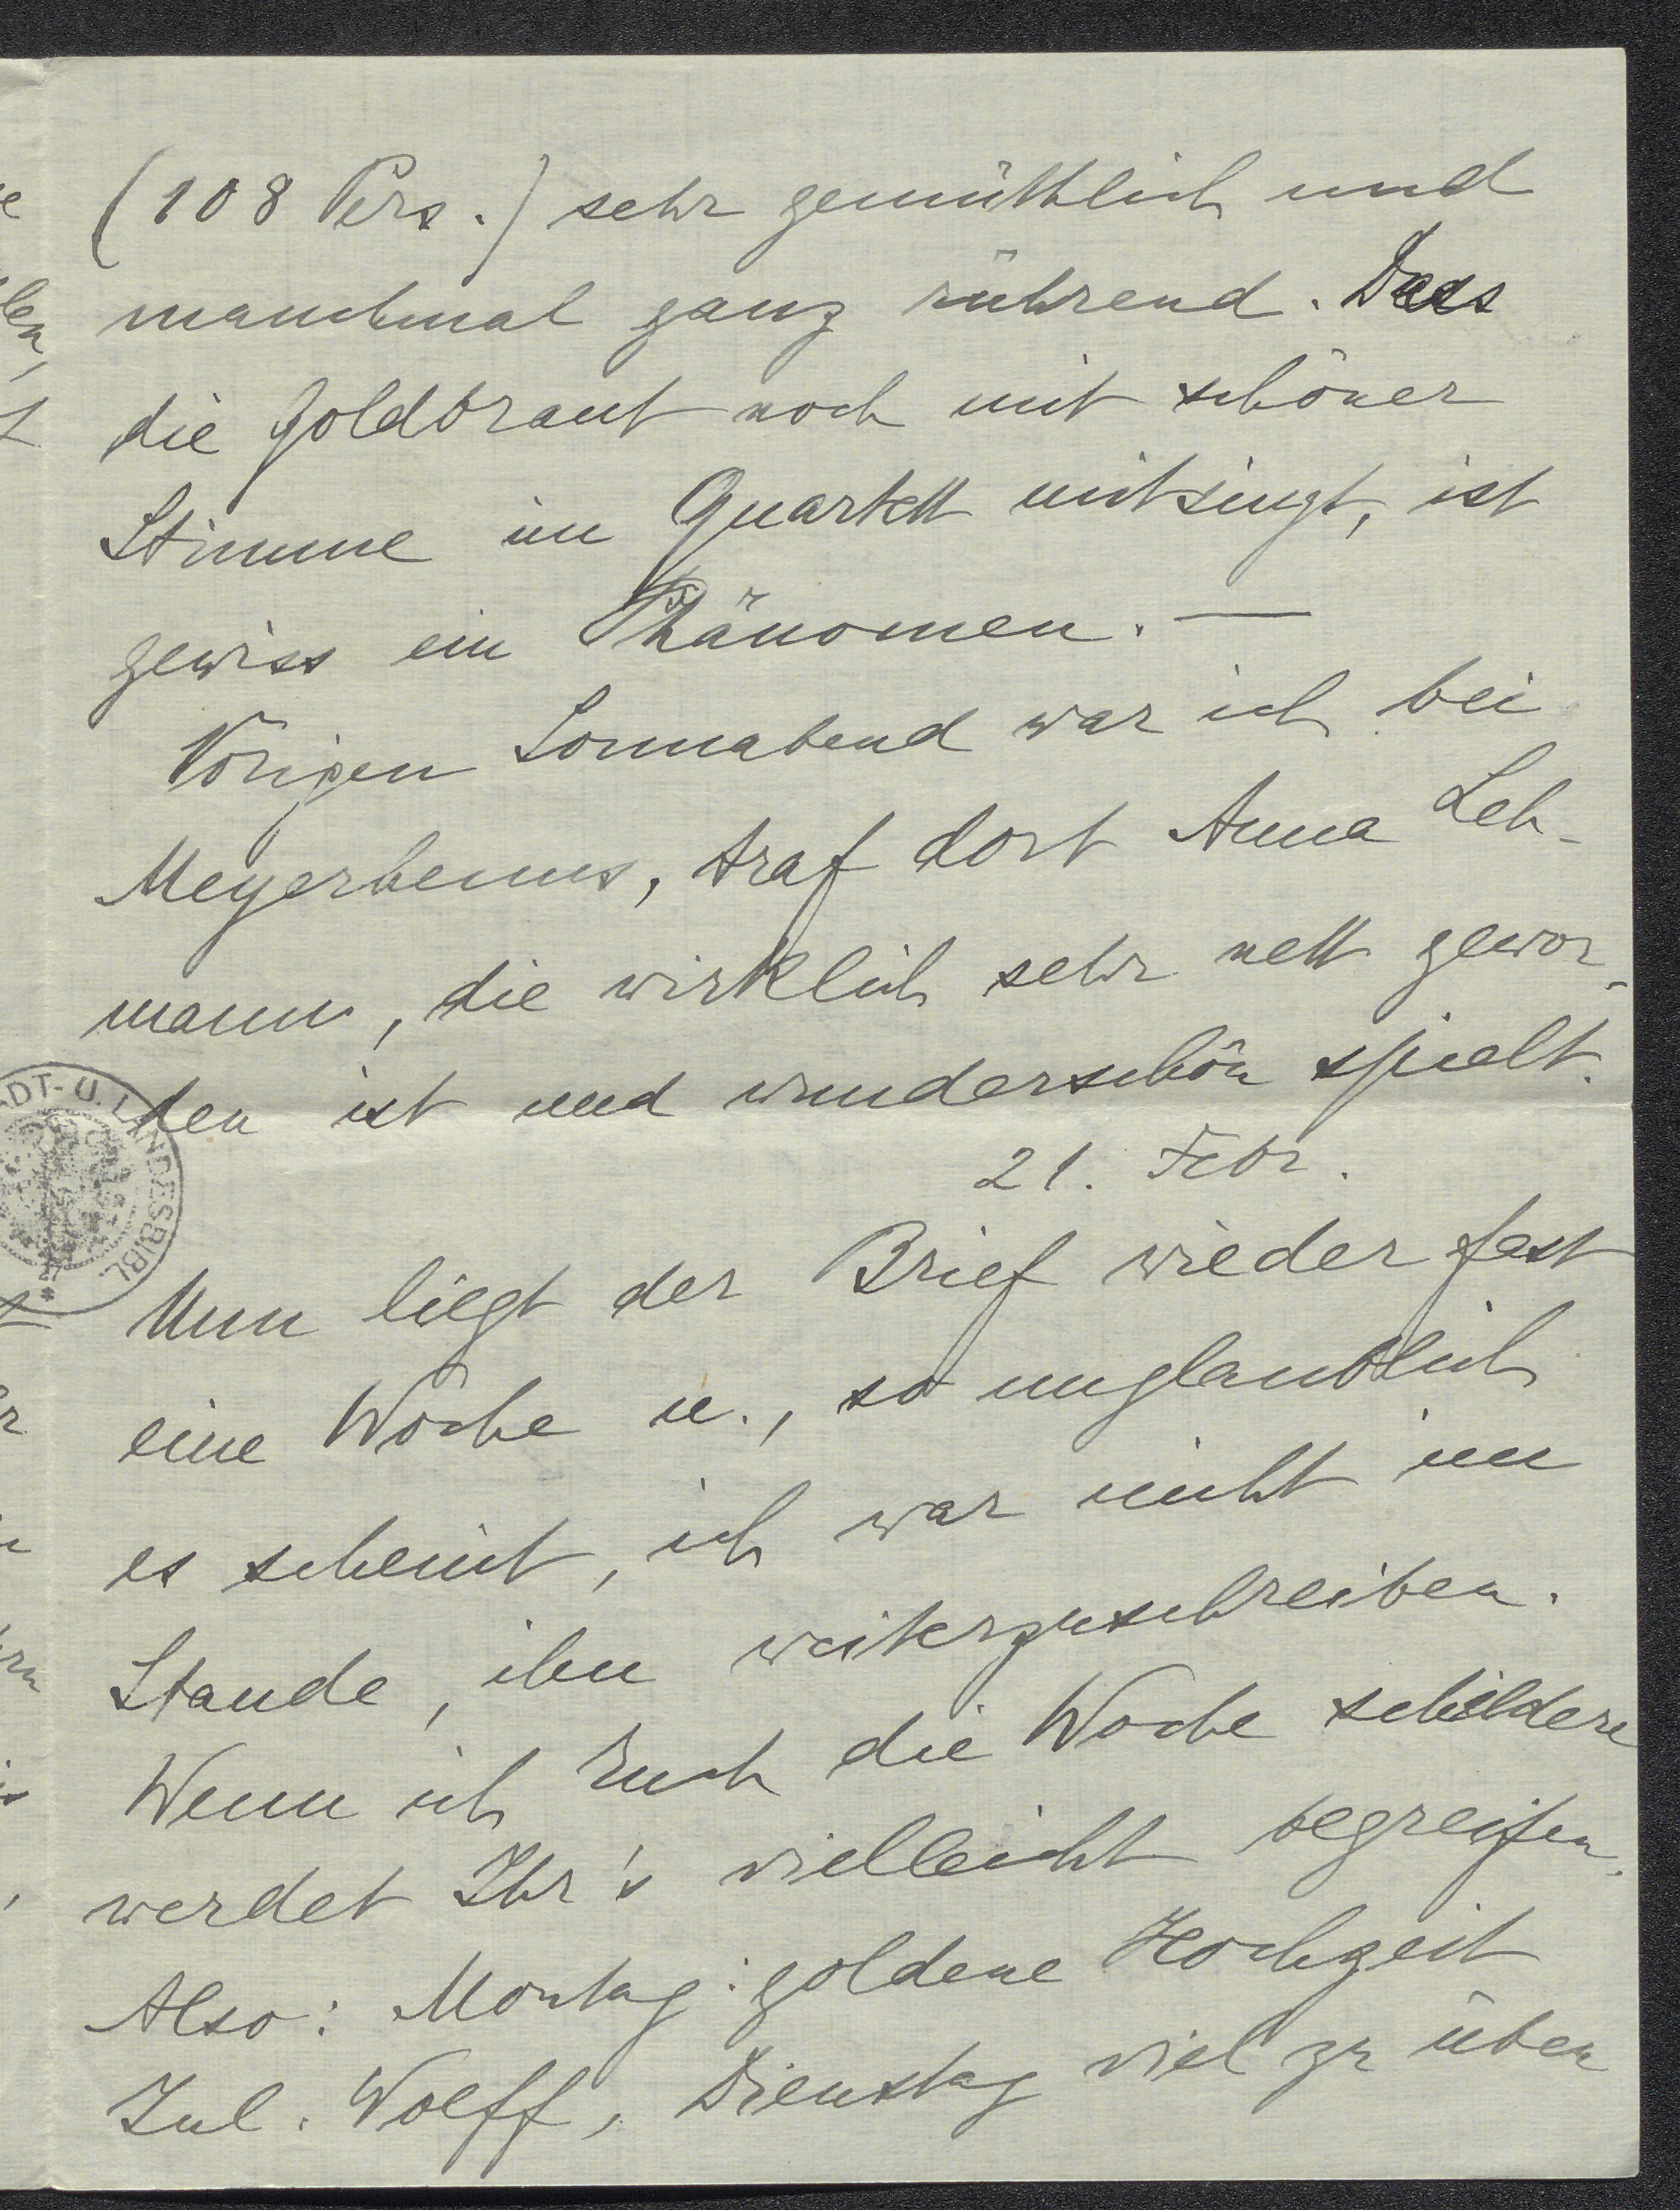 (108 Pers.) sehr gemüthlich und
manchmal ganz rührend. Dass
die Goldbraut noch mit schöner
Stimme im Quartett mitsingt, ist
gewiss ein Phänomen. —
Vorigen Sonnabend war ich bei
Meyerheims, traf dort Anna Leh-
mann, die wirklich sehr nett gewor-
den ist und wunderschön spielt.
21. Febr.
Nun liegt der Brief wieder fast
eine Woche u., so unglaublich
es scheint, ich war nicht im
Stande, ihn weiterzuschreiben.
Wenn ich Euch die Woche schildere
werdet Ihr's vielleicht begreifen.
Also: Montag: goldene Hochzeit
Jul. Wolff, Dienstag viel zu üben
DT- U. LANDESBIBL.